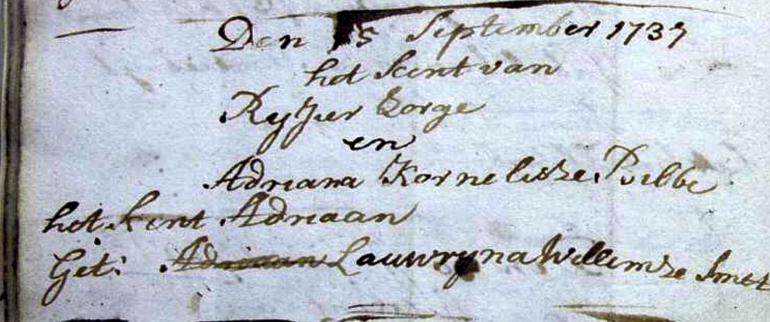 Den 15 September 1737
het kent van
Ryer Zorge
en
Adriana Kornelisze Puibbe
het kent Adriaan
Get: Adriaan Lauwryna Willemze Smet